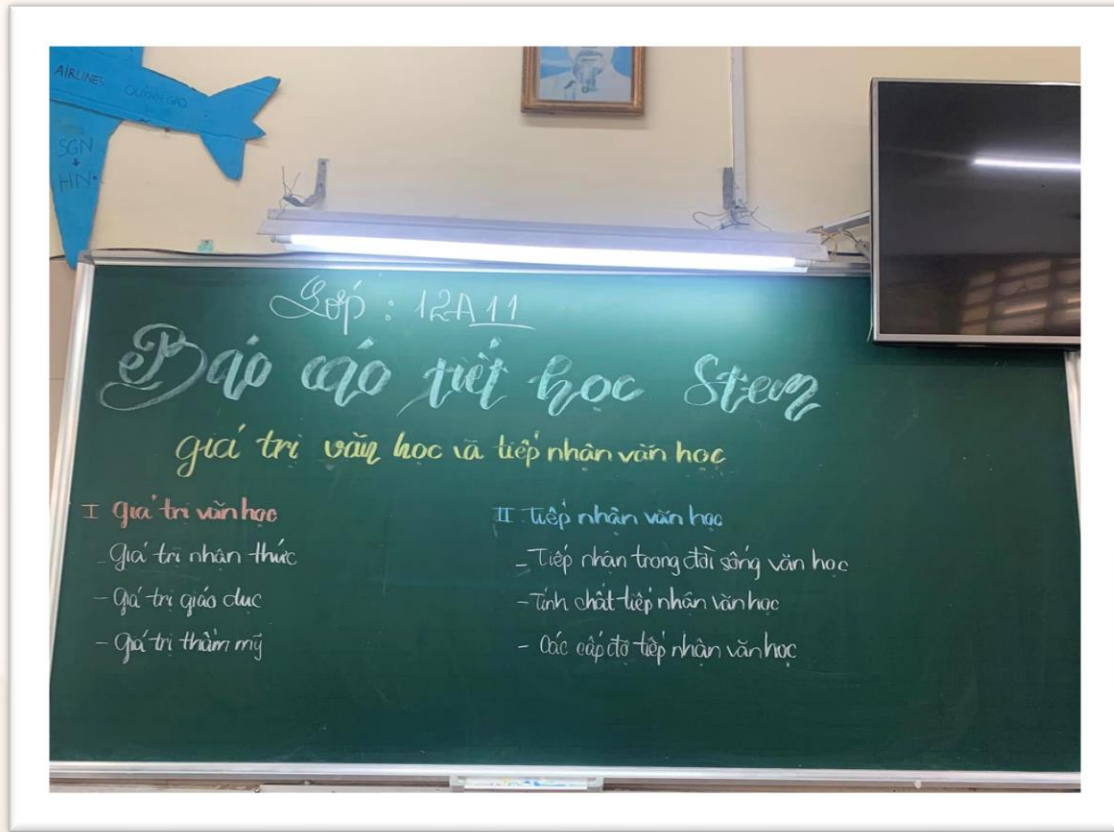 AIRLINES QUỲNH GAO
SGN
+
HN
Lớp : 12A11
Báo cáo tiết học Stem
giá trị văn học và tiếp nhận văn học
I giá trị văn học
- Giá trị nhận thức
- Giá trị giáo dục
- Giá trị thẩm mỹ
II. Tiếp nhận văn học
- Tiếp nhận trong đời sống văn học
- Tính chất tiếp nhận văn học
- Các cấp độ tiếp nhận văn học